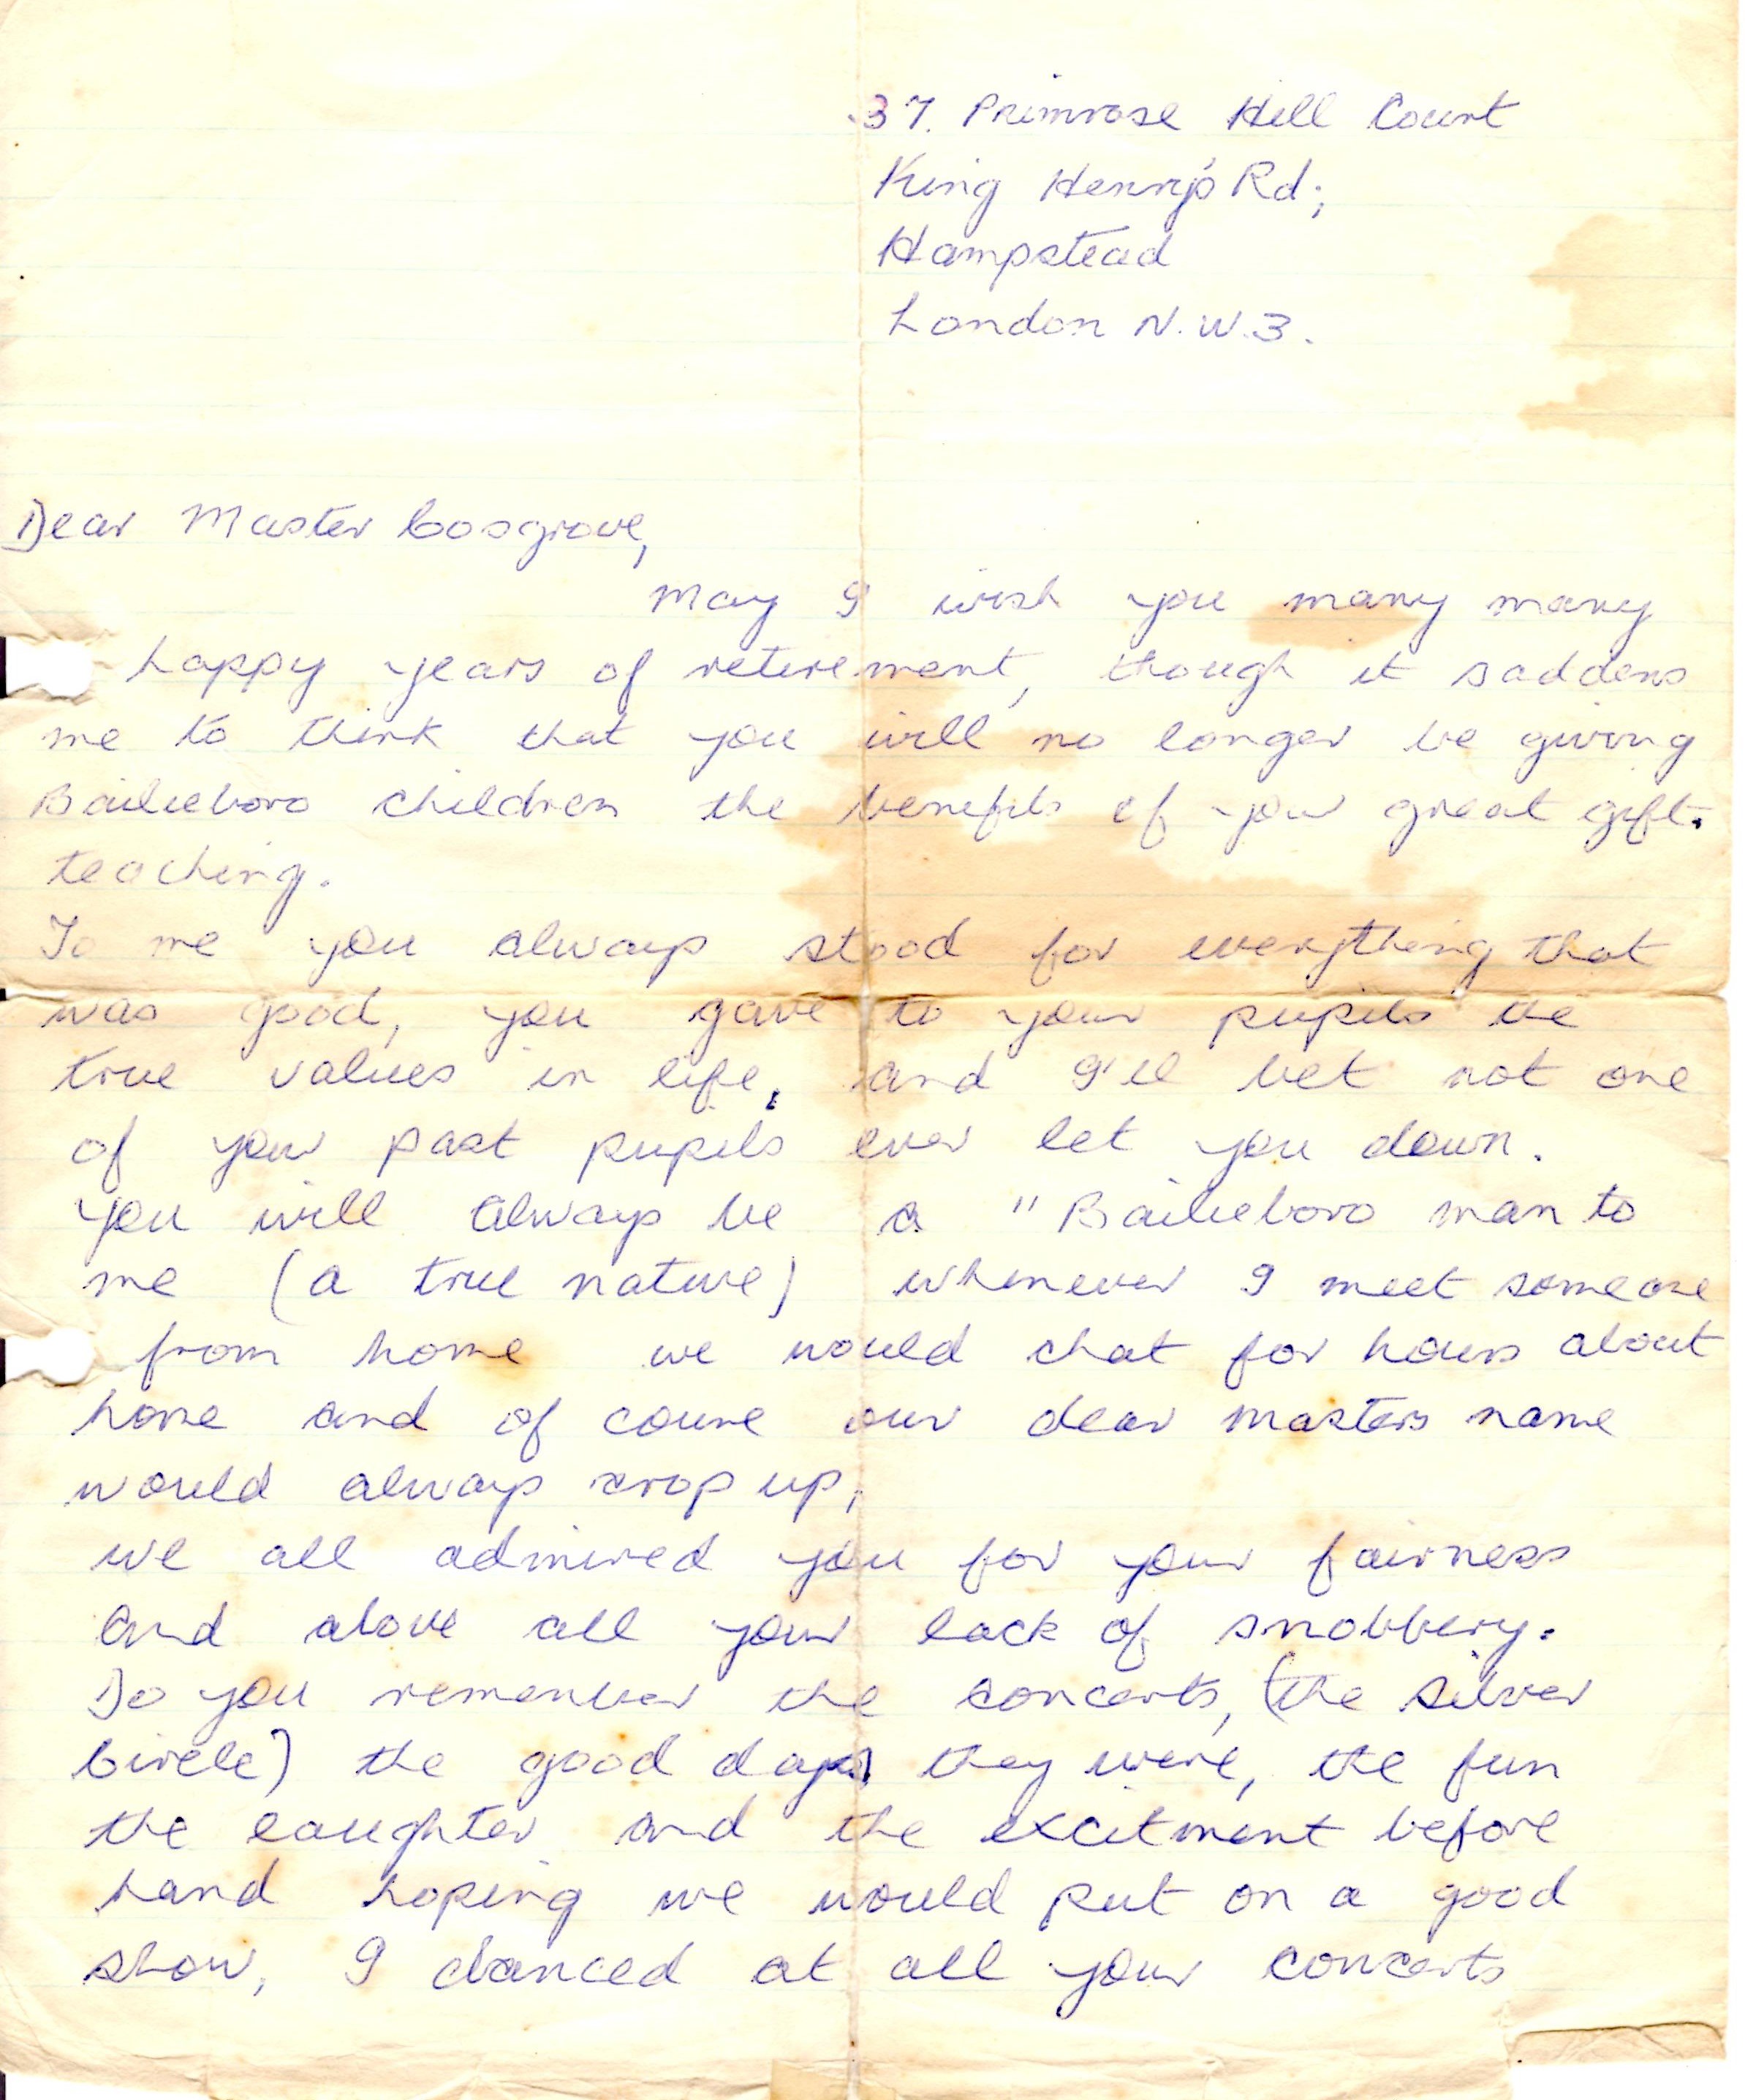 37. Primrose Hill Court
King Henry's Rd;
Hampstead
London N.W.3.
Dear Master Cosgrove,
May I wish you many many
happy years of retirement, though it saddens
me to think that you will no longer be giving
Bailieboro children the benefits of your great gift.
teaching.
To me you always stood for everything that
was good, you gave to your pupils the
true values in life, and I'll bet not one
of your past pupils ever let you down.
You will always be a "Bailieboro man to
me (a true native) whenever I meet someone
from home we would chat for hours about
home and of course our dear masters name
would always crop up,
we all admired you for your fairness
and above all your lack of snobbery.
Do you remember the concerts, (the Silver
Circle) the good days they were, the fun
the laughter and the excitment before
hand hoping we would put on a good
show, I danced at all your concerts